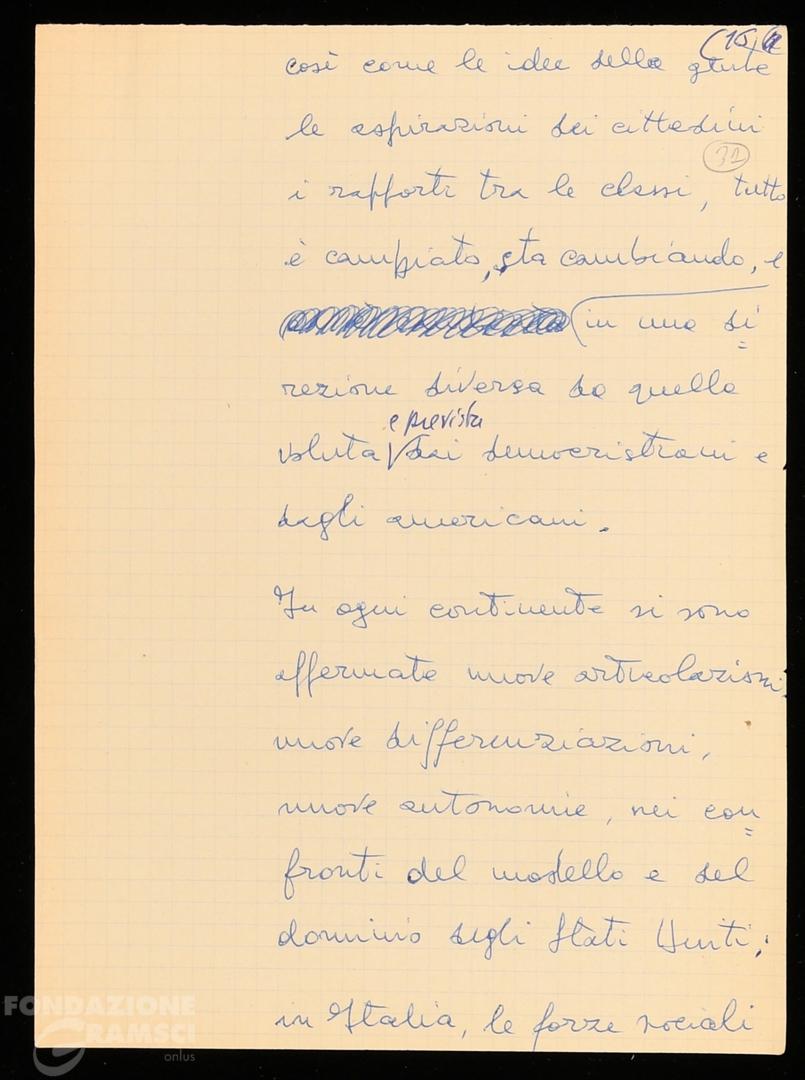 (15
così come le idee della gente
le aspirazioni dei cittadini
31
i rapporti tra le classi, tutto
è cambiato, sta cambiando, e
in una di=
rezione diversa da quella
e prevista
voluta dai democristiani e
dagli americani.
In ogni continente si sono
affermate nuove articolazioni
nuove differenziazioni,
nuove autonomie, nei con=
fronti del modello e del
dominio degli Stati Uniti;
in Italia, le forze sociali
FONDAZIONE
GRAMSCI
onlus